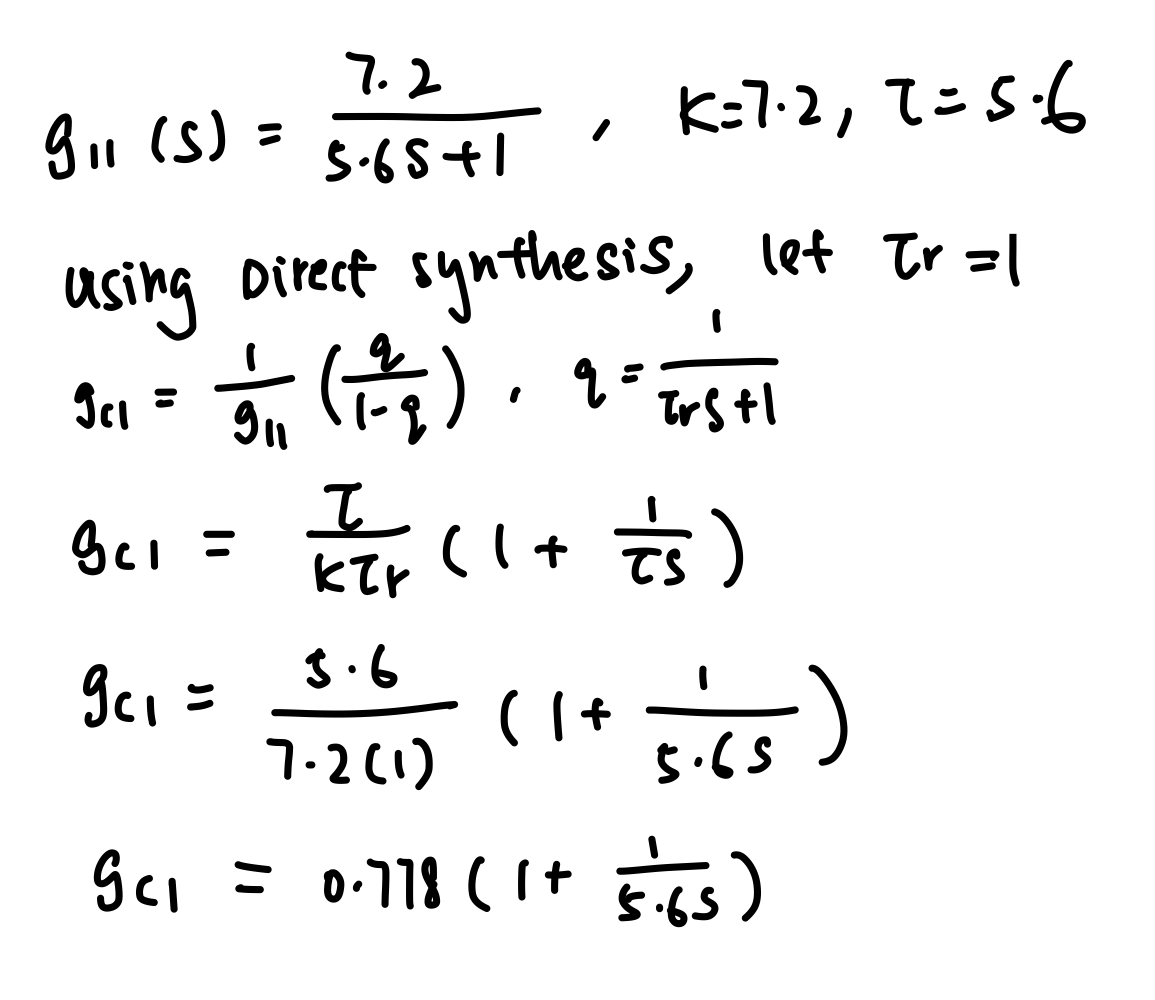 g₁₁(s) = 7.2/(5.6s+1) , K=7.2, τ=5.6
using Direct synthesis, let τr =1
gc1 = 1/g₁₁ (q/(1-q)) , q = 1/(τrs+1)
gc1 = τ/(Kτr) (1 + 1/(τs))
gc1 = 5.6/(7.2(1)) (1+ 1/(5.6s))
gc1 = 0.778 (1+ 1/(5.6s))